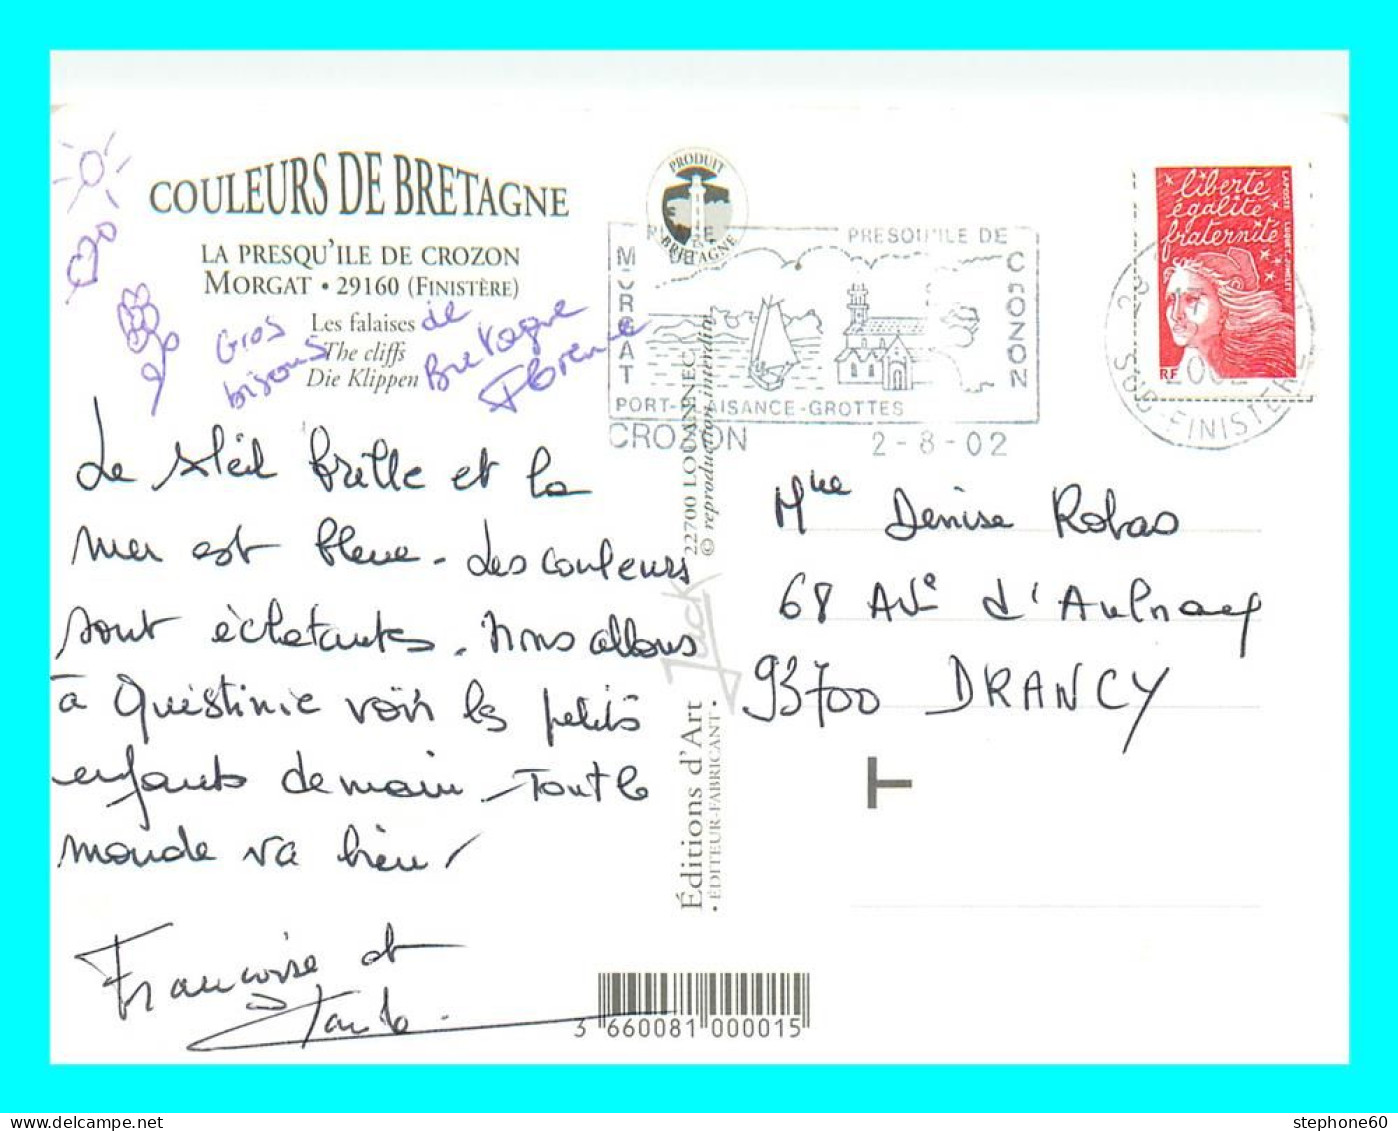 COULEURS DE BRETAGNE
LA PRESQU'ILE DE CROZON
MORGAT • 29160 (FINISTÈRE)
Les falaises
The cliffs
Die Klippen
Gros
bisous
de
Bretagne
Florence
Le soleil brille et la
mer est bleue. Les couleurs
sont éclatantes. Nous allons
à Quistinic voir les petits
enfants demain. Tout le
monde va bien!
Françoise et
PRODUIT
BRETAGNE
PRESQU'ILE DE
CROZON
MORGAT
PORT-PLAISANCE-GROTTES
CROZON 2-8-02
22700 LOUANNEC
© reproduction interdite
Jack
Éditions d'Art
• ÉDITEUR-FABRICANT •
3 660081 000015
liberté
égalité
fraternité
LA POSTE
LUQUET
RF
2002
SUD-FINISTERE
Mlle Denise Robas
68 Ave d'Aulnay
93700 DRANCY
T
stephone60